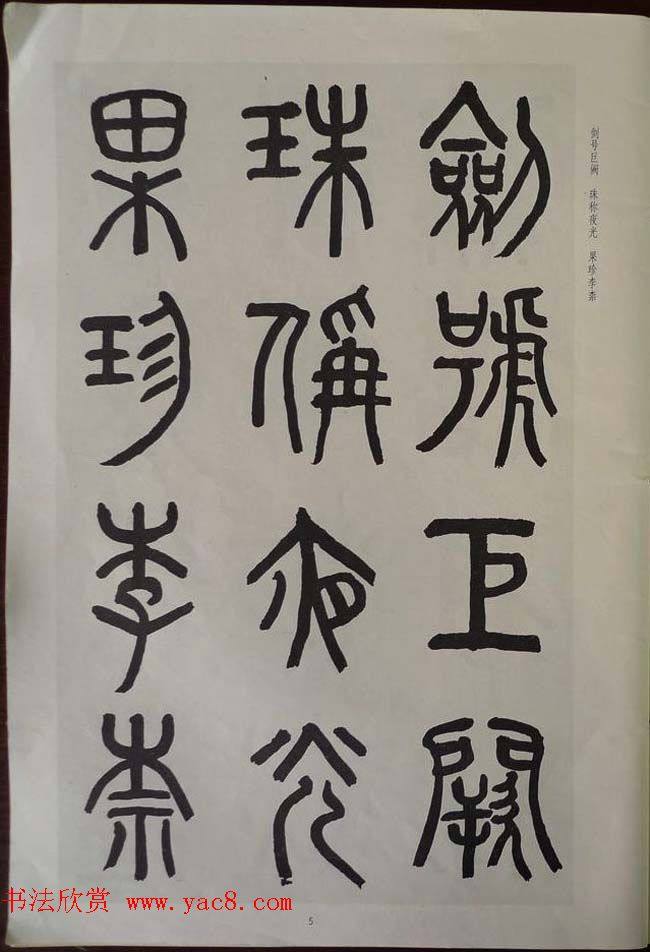 剑号巨阙 珠称夜光 果珍李柰
劍號巨闕
珠稱夜光
果珍李柰
书法欣赏 www.yac8.com
5